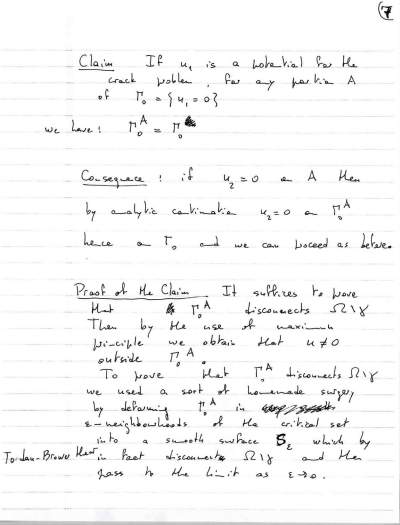 7
Claim If u₁ is a potential for the
crack problem, for any portion A
of Γ₀ = {u₁ = 0}
we have: Γ₀ᴬ = Γ₀
Consequence: if u₂ = 0 on A then
by analytic continuation u₂ = 0 on Γ₀ᴬ
hence on Γ₀ and we can proceed as before.
Proof of the Claim. It suffices to prove
that Γ₀ᴬ disconnects Ω\γ
Then by the use of maximum
principle we obtain that u ≠ 0
outside Γ₀ᴬ.
To prove that Γ₀ᴬ disconnects Ω\γ
we used a sort of homemade surgery
by deforming Γ₀ᴬ in
ε-neighbourhoods of the critical set
into a smooth surface S_ε which by
Jordan-Brower thm in fact disconnects Ω\γ and then
pass to the limit as ε→0.